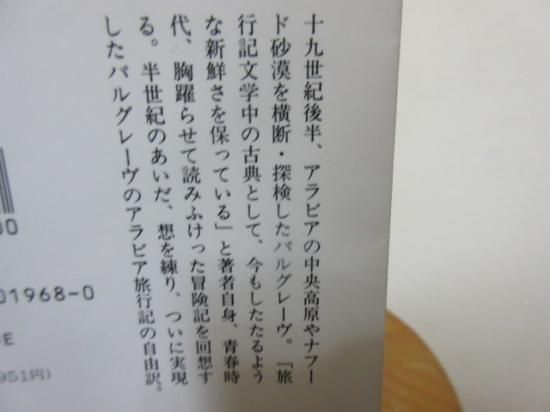 十九世紀後半、アラビアの中央高原やナフー
ド砂漠を横断・探検したパルグレーヴ。「旅
行記文学中の古典として、今もしたたるよう
な新鮮さを保っている」と著者自身、青春時
代、胸躍らせて読みふけった冒険記を回想す
る。半世紀のあいだ、想を練り、ついに実現
したパルグレーヴのアラビア旅行記の自由訳。
00
01968-0
E
951円)